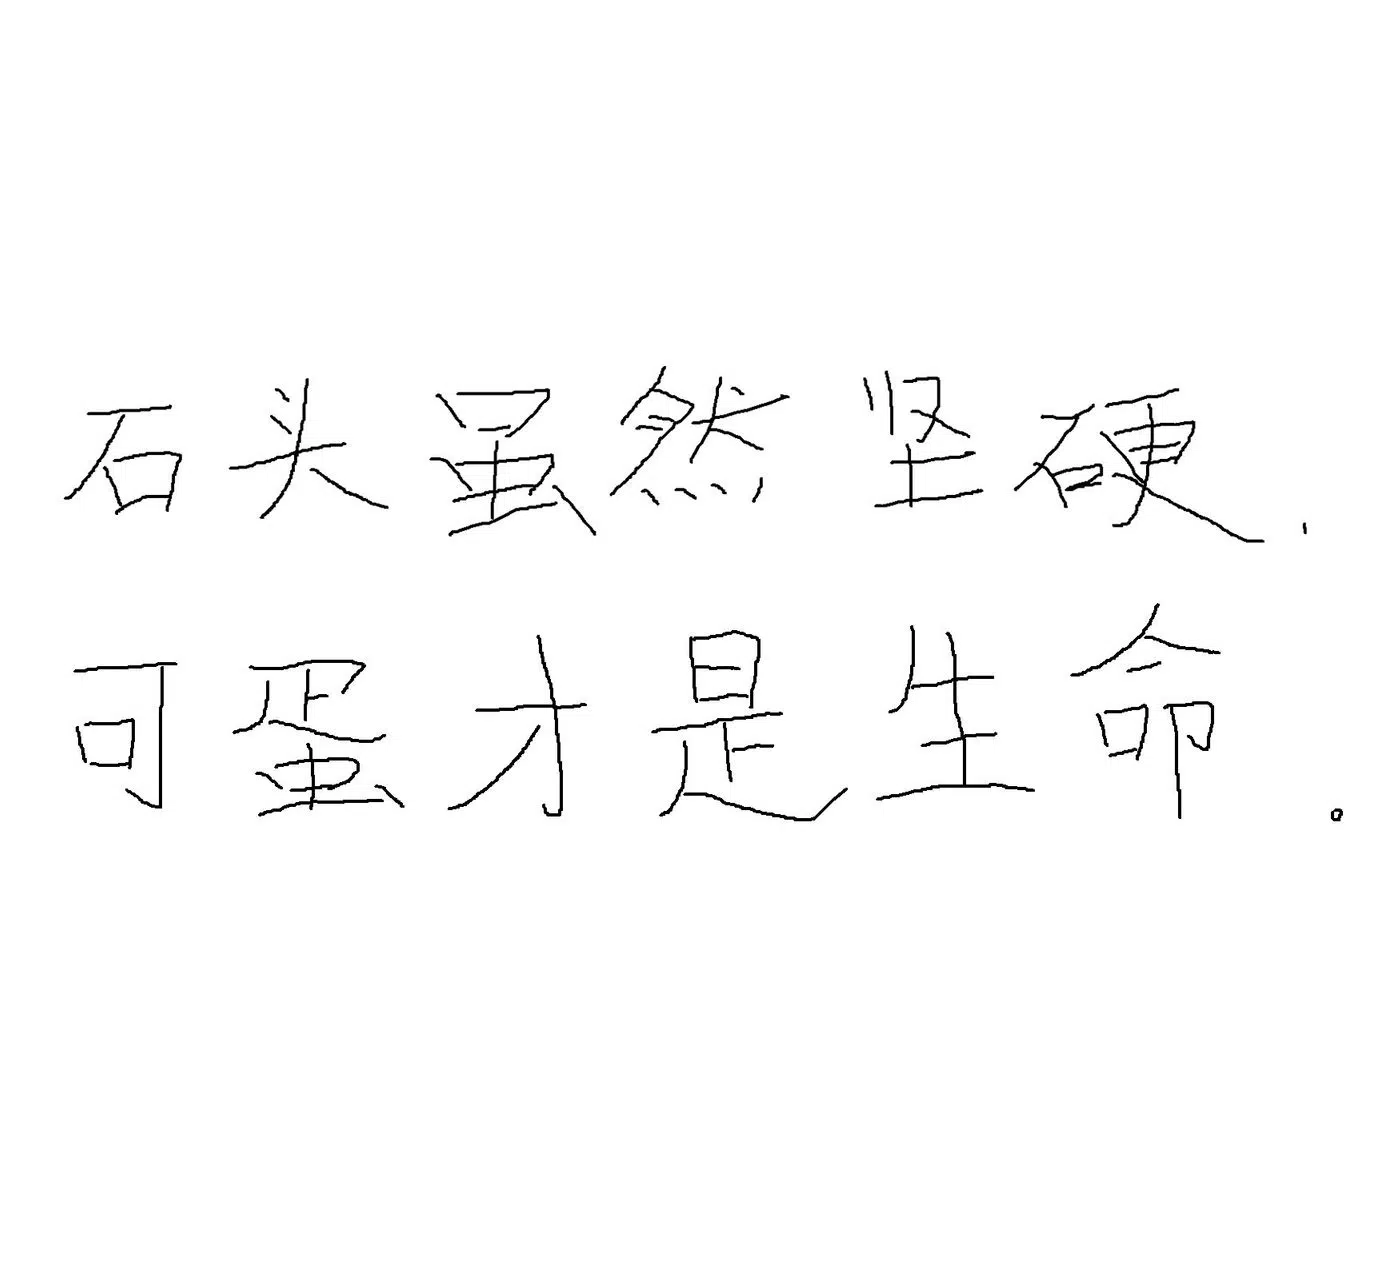 石头虽然坚硬，
可蛋才是生命。